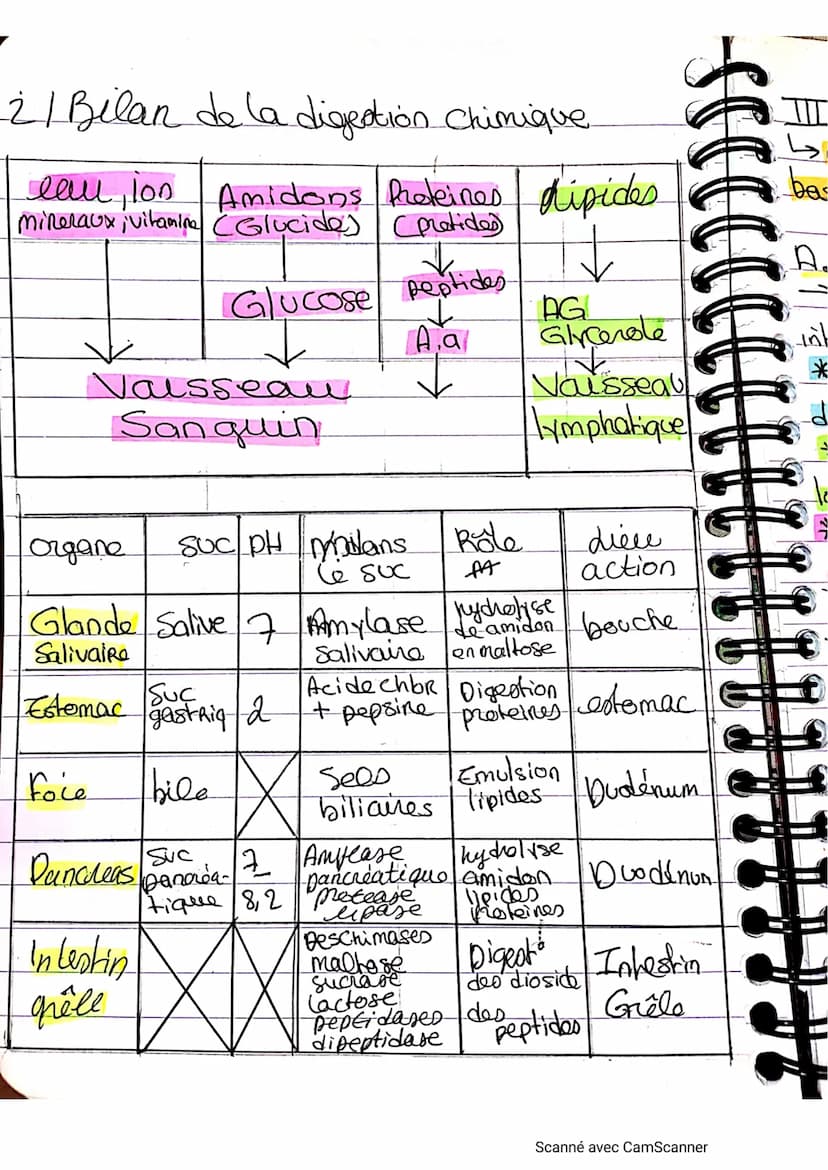 2/ Bilan de la digestion chimique
eau, ion
mineraux, vitamine
Amidons
(Glucides)
Glucose
Proteines
(protides)
peptides
A.a
Vaisseau
Sanguin
Lipides
AG
Glycerole
Vaisseau
lymphatique
Organe
suc
PH
dans
le suc
Rôle
lieu
action
Glande
Salivaire
Salive
7
Amylase
salivaire
hydrolyse
de amidon
en maltose
bouche
Estomac
Suc
gastriq
2
Acide chlor
+ pepsine
Digestion
proteines
estomac
Foie
bile
Sels
biliaires
Emulsion
lipides
Duodénum
Pancreas
Suc
pancréa-
tique
7
8,2
Amylase
pancréatique
protease
lipase
hydrolyse
amidon
lipides
proteines
Duodénum
Intestin
grêle
maltase
sucrase
lactose
peptidases
dipeptidase
Digest°
des dioside
des
peptides
Intestin
Grêle
III
bes
A.
int
*
d
Scanné avec CamScanner